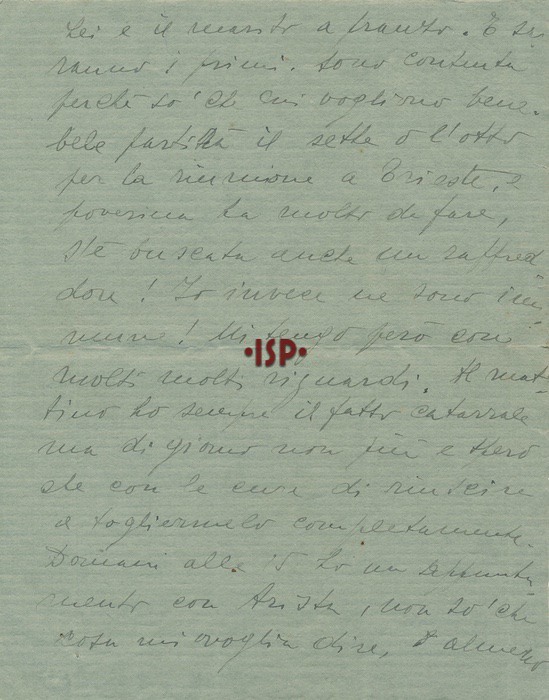 Lei e il marito a pranzo. E sa
ranno i primi. Sono contenta
perché so' che mi vogliono bene.
Bebe partirà il sette o l'otto
per la riunione a Trieste, e
poverina ha molto da fare,
s'è buscata anche un raffred
dore! Io invece ne sono im
mune! Mi tengo però con
•ISP•
molti molti riguardi. Al mat-
tino ho sempre il fatto catarrale
ma di giorno non più e spero
che con le cure di riuscire
a togliermelo completamente.
Domani alle 15 ho un appunta
mento con Arista, non so' che
cosa mi voglia dire, almeno